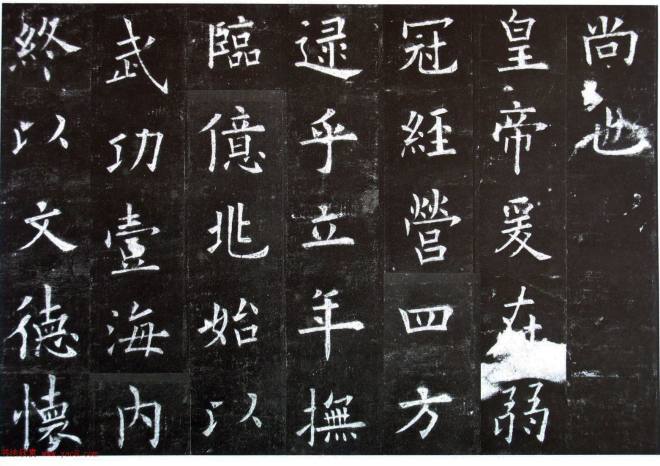 尚也
皇帝爰在弱
冠經營四方
逯乎立年撫
臨億兆始以
武功壹海內
終以文德懷